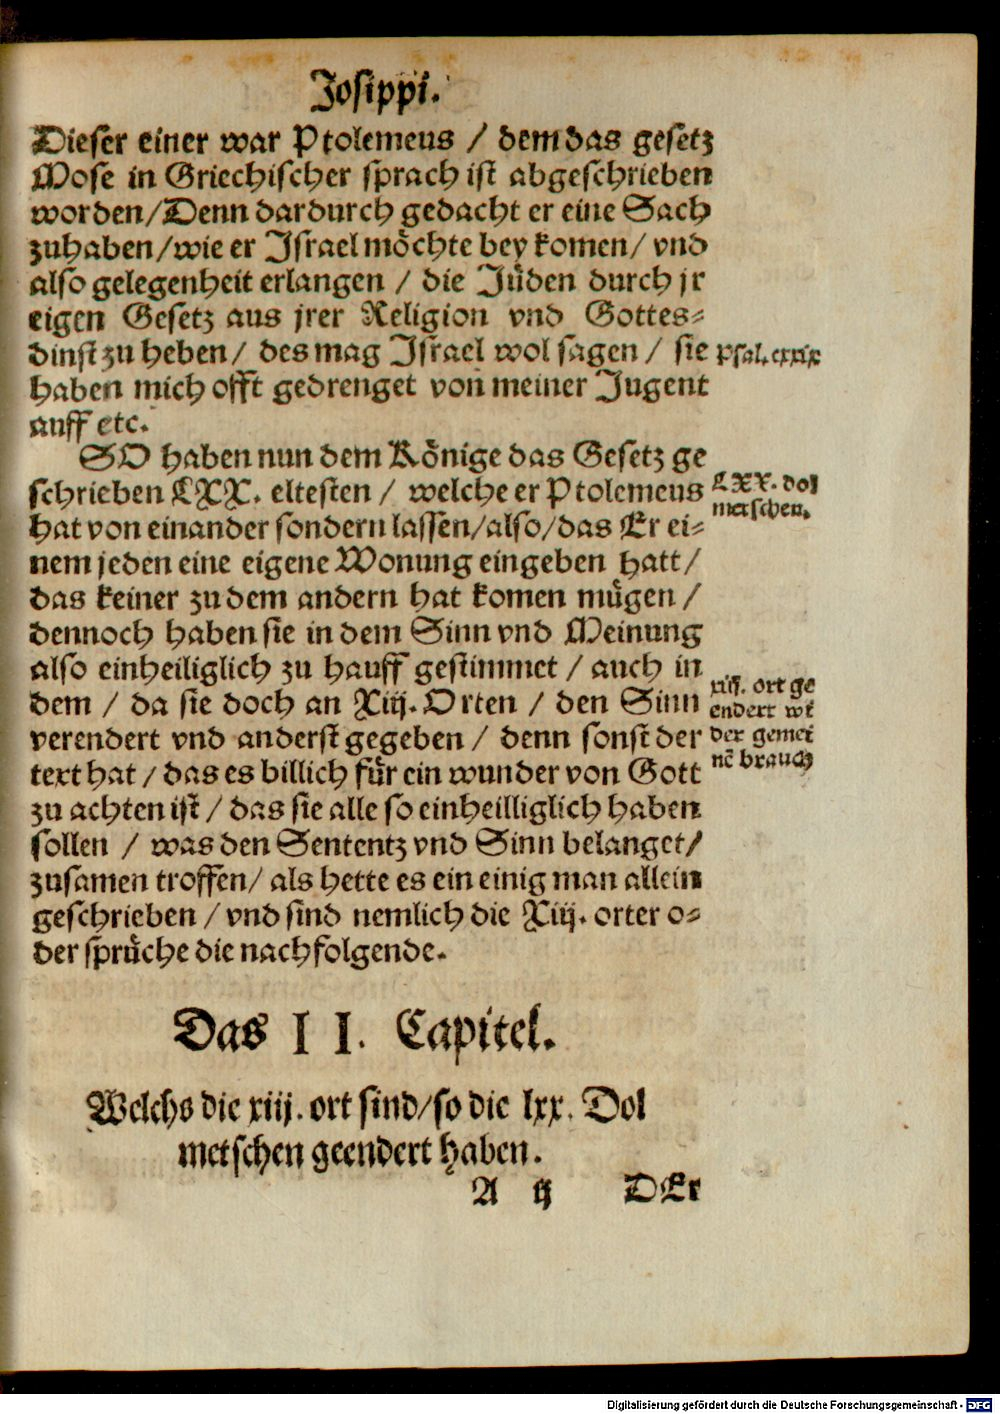 Josippi.
Dieser einer war Ptolemeus / dem das gesetz
Mose in Griechischer sprach ist abgeschrieben
worden/Denn dardurch gedacht er eine Sach
zuhaben/wie er Israel möchte bey komen/ vnd
also gelegenheit erlangen / die Jüden durch jr
eigen Gesetz aus jrer Religion vnd Gottes-
dinst zu heben/ des mag Israel wol sagen / sie
Psal. cxxix
haben mich offt gedrenget von meiner Jugent
auff etc.
SO haben nun dem Könige das Gesetz ge
schrieben LXX. eltesten / welche er Ptolemeus
LXX. dol
metschen.
hat von einander sondern lassen/also/das Er ei-
nem jeden eine eigene Wonung eingeben hatt/
das keiner zu dem andern hat komen mügen /
dennoch haben sie in dem Sinn vnd Meinung
also einheiliglich zu hauff gestimmet / auch in
dem / da sie doch an Xiij. Orten / den Sinn
xiij. ort ge
endert wi
der gemei
nē brauch
verendert vnd anderst gegeben / denn sonst der
text hat / das es billich für ein wunder von Gott
zu achten ist / das sie alle so einheilliglich haben
sollen / was den Sententz vnd Sinn belanget/
zusamen troffen/ als hette es ein einig man allein
geschrieben / vnd sind nemlich die Xiij. orter o-
der sprüche die nachfolgende.
Das II. Capitel.
Welchs die xiij. ort sind/so die lxx. Dol
metschen geendert haben.
A ij DEr
Digitalisierung gefördert durch die Deutsche Forschungsgemeinschaft - DFG